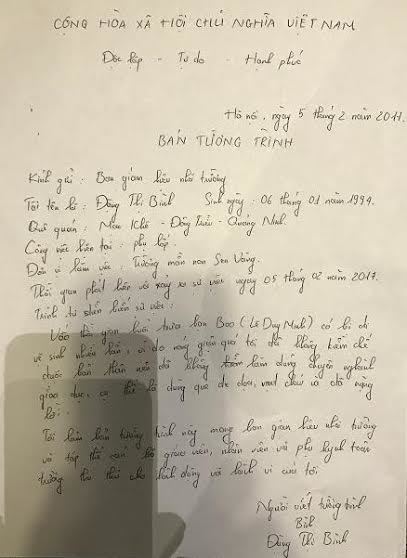 CỘNG HÒA XÃ HỘI CHỦ NGHĨA VIỆT NAM
Độc lập - Tự do - Hạnh phúc
Hà nội, ngày 5 tháng 2 năm 2017.
BẢN TƯỜNG TRÌNH
Kính gửi: Ban giám hiệu nhà trường
Tôi tên là: Đặng Thị Bình Sinh ngày: 06 tháng 01 năm 1994.
Quê quán: Mạo Khê - Đông Triều - Quảng Ninh.
Công việc hiện tại: phụ lớp.
Đơn vị làm việc: Trường mầm non Sen Vàng.
Thời gian phát hiện và xảy ra sự việc ngày 05 tháng 02 năm 2017.
Trình tự diễn biến sự việc:
Vào thời gian buổi trưa ban Bao (Lê Duy Minh) có bị đi
vệ sinh nhiều lần, vì do nóng giận quá tôi đã không kiềm chế
được bản thân nên đã không làm đúng chuyên ngành
giáo dục, cụ thể là dùng que đe dọa, vụt cháu và có nặng
lời.
Tôi làm bản tường trình này mong ban giám hiệu nhà trường
và tập thể cán bộ giáo viên, nhân viên và phụ huynh toàn
trường tha thứ cho hành động và hành vi của tôi
Người viết tường trình
Bình
Đặng Thị Bình